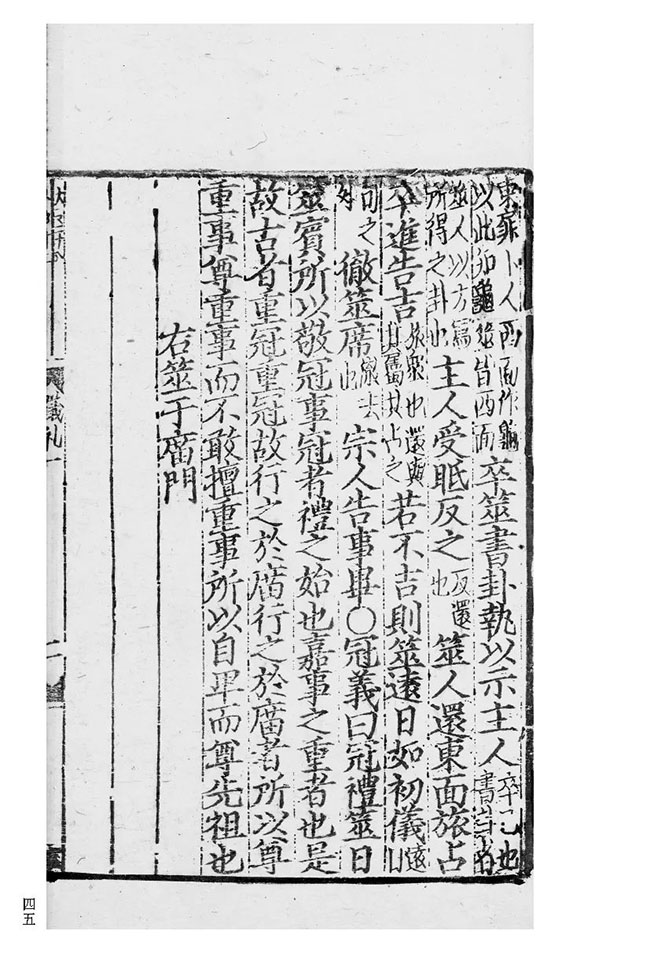 東龜卜人西面作龜以此卯龜筮皆西面卒筮書卦執以示主人卒已也書卦者
筮人以方寫所得之卦也主人受眂反之反還也筮人還東面旅占
卒進告吉旅衆也還與其屬共占之若不吉則筮遠日如初儀遠日
旬之外徹筮席徹去也宗人告事畢〇冠義曰冠禮筮日
筮賓所以敬冠事冠者禮之始也嘉事之重者也是
故古者重冠重冠故行之於廟行之於廟者所以尊
重事尊重事而不敢擅重事所以自卑而尊先祖也
右筮于廟門
儀礼一
二
四五